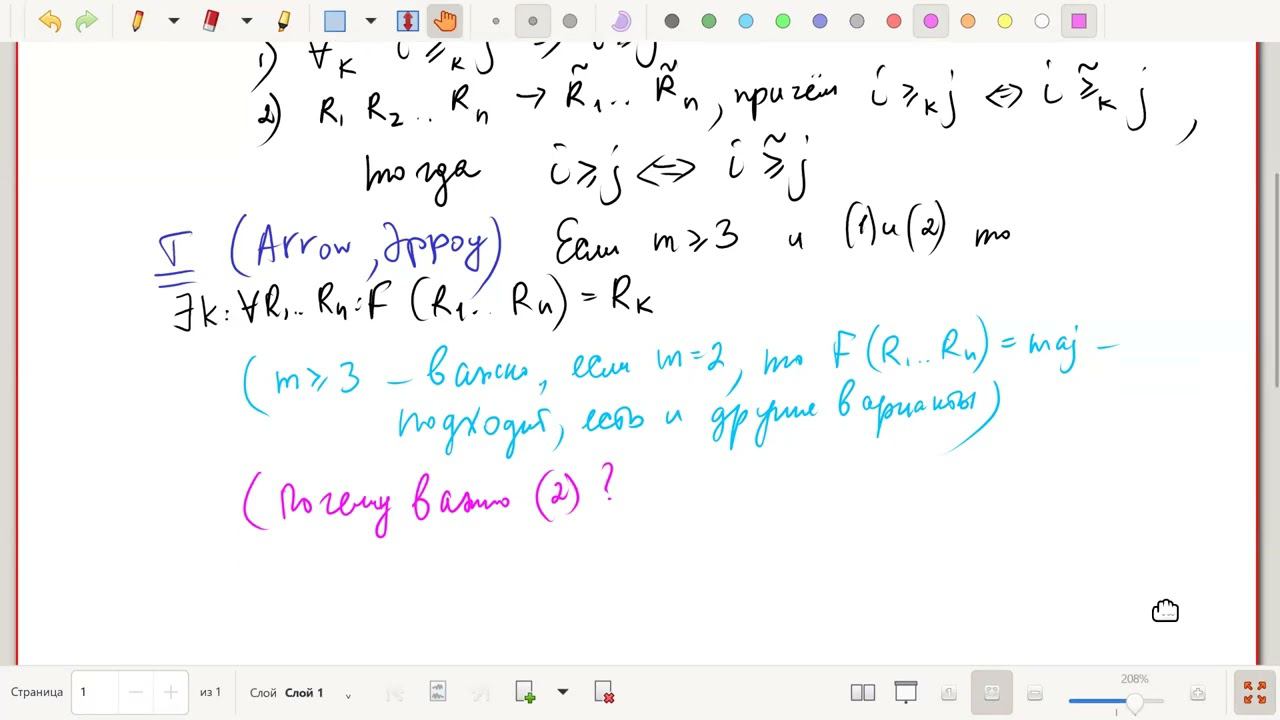 1) ∀k i ≥ₖ j ⇒ i ≥ j
2) R₁ R₂ .. Rₙ → R̃₁ .. R̃ₙ, причём i ≥ₖ j ⇔ i ≥̃ₖ j,
тогда i ≥ j ⇔ i ≥̃ j
T (Arrow, Эрроу) Если m ≥ 3 и (1) и (2) то
∃k: ∀R₁.. Rₙ: F (R₁.. Rₙ) = Rₖ
(m ≥ 3 – важно, если m = 2, то F(R₁..Rₙ) = maj –
подходит, есть и другие варианты)
(Почему важно (2) ?
Страница 1 из 1 Слой Слой 1 208%